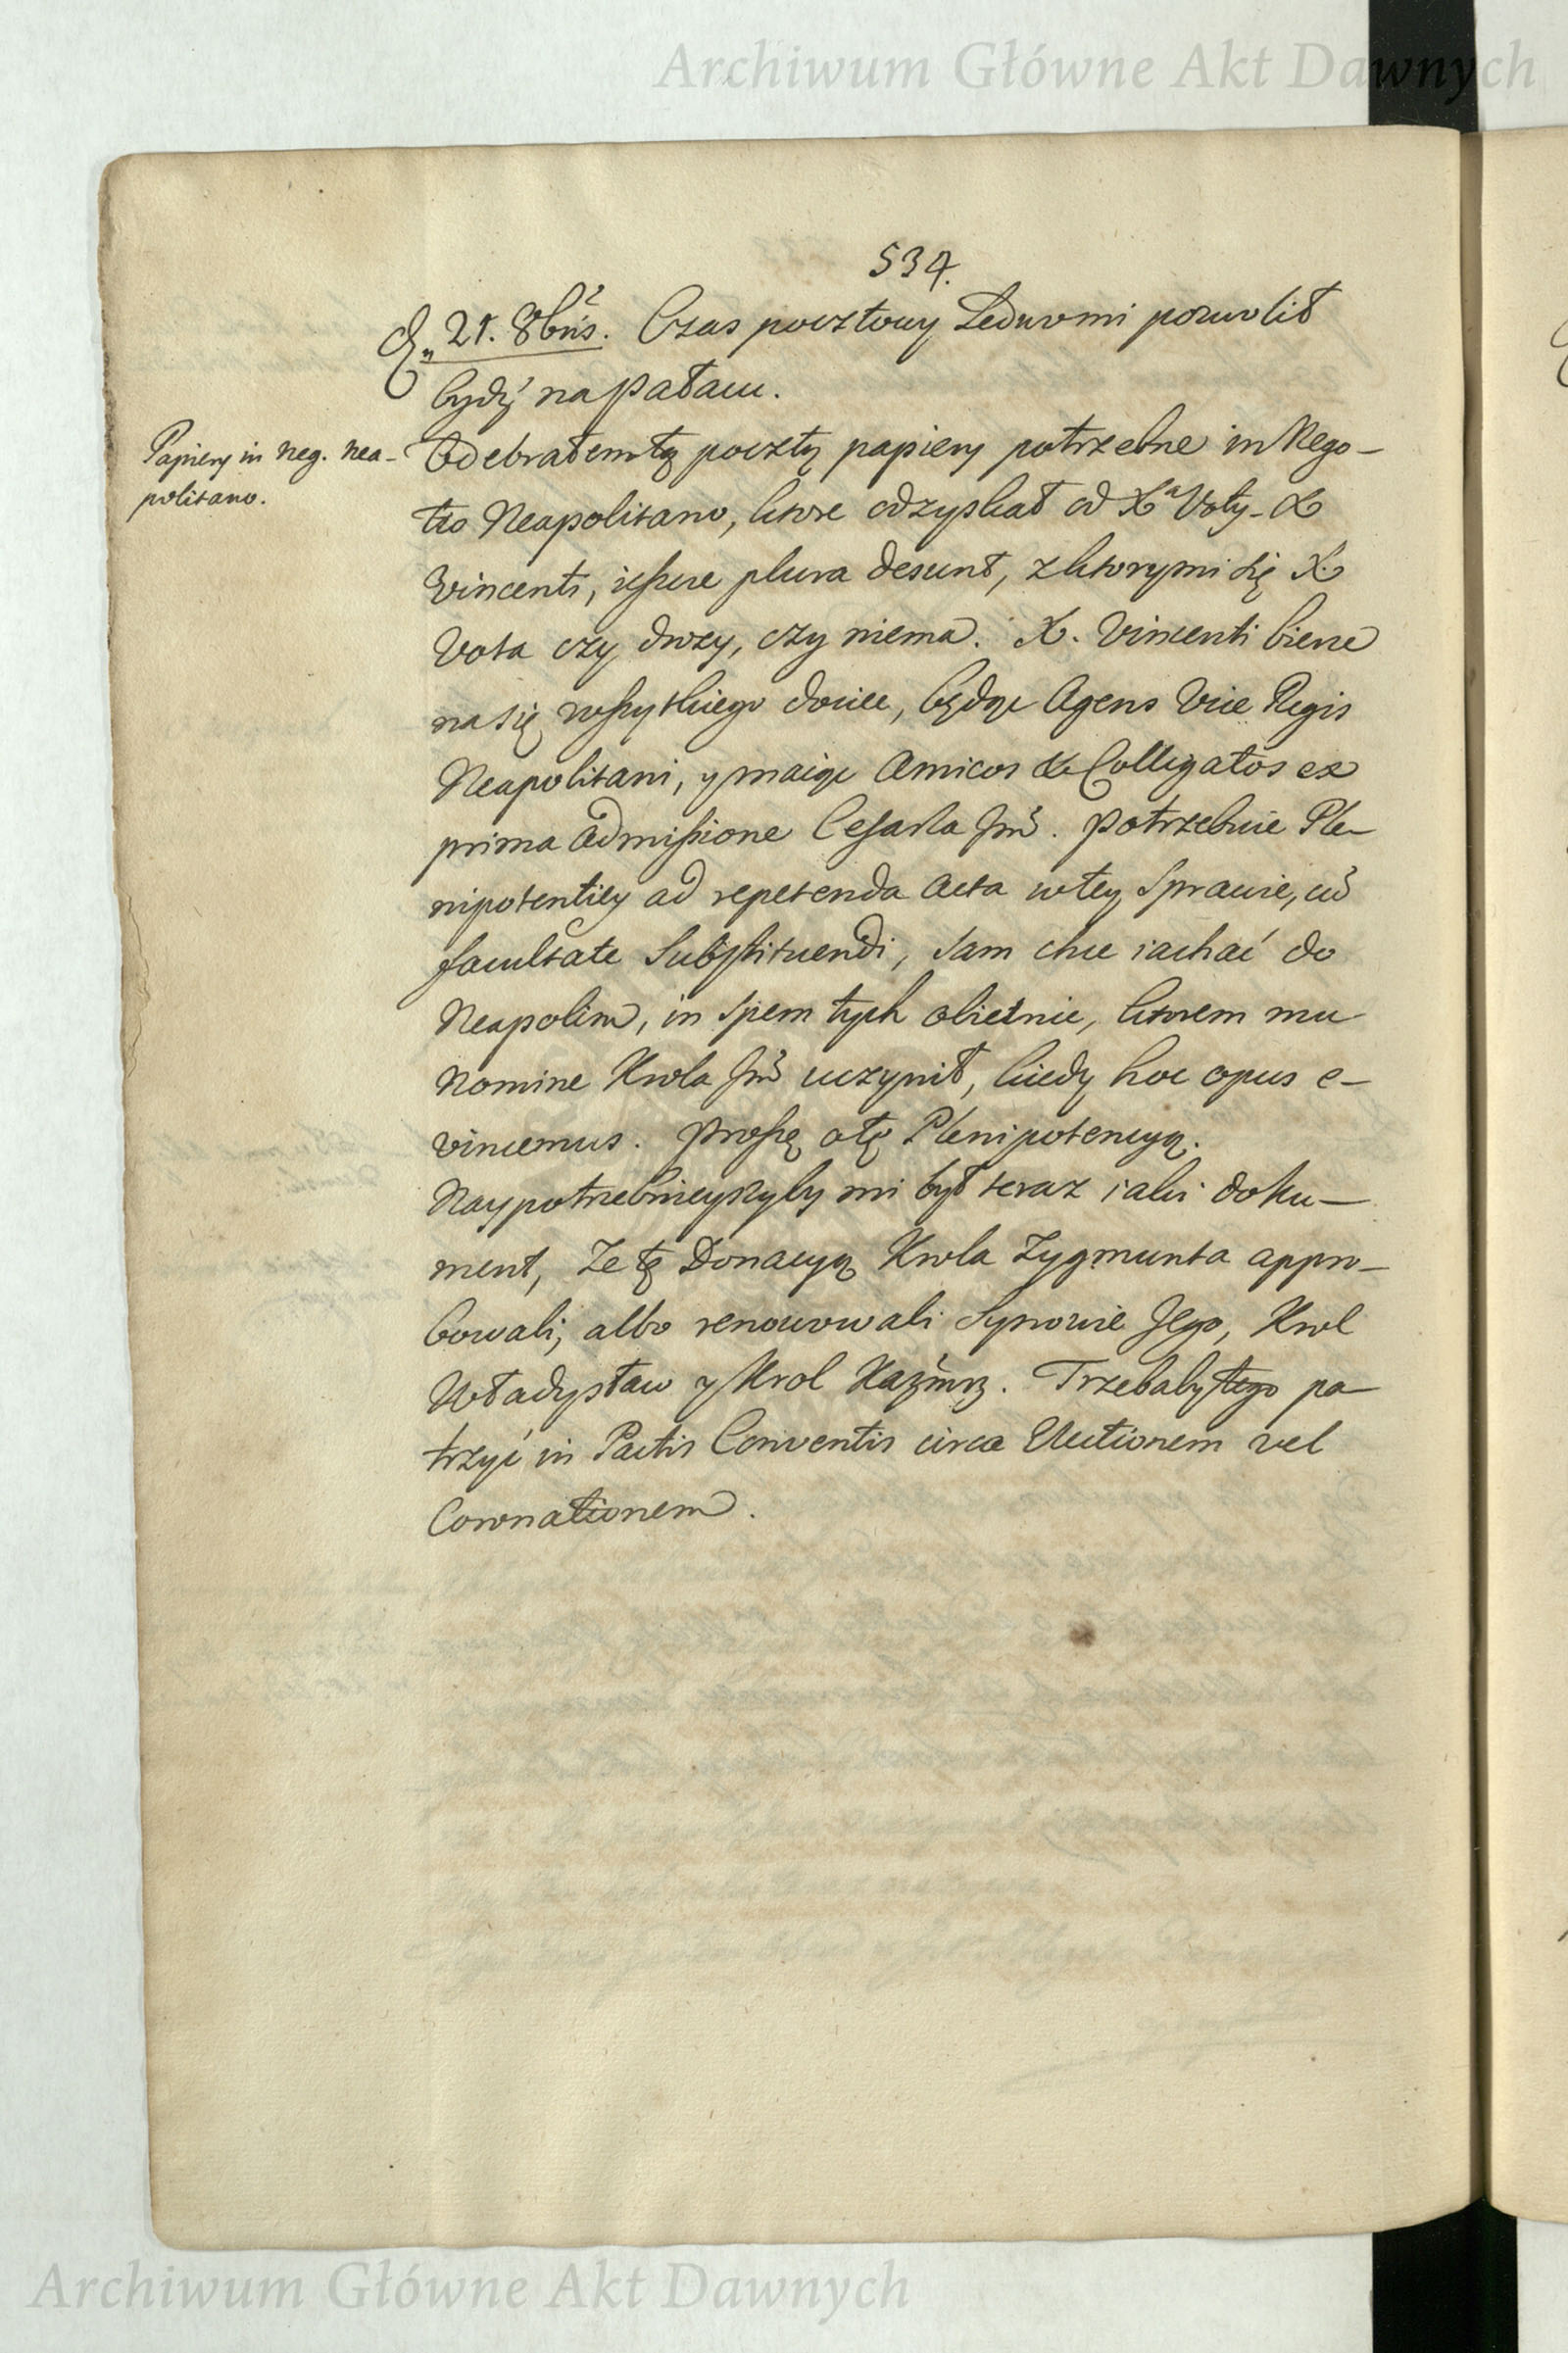 Archiwum Główne Akt Dawnych
534.
21. 8bris. Czas pocztowy Ledwo mi pozwolił
bydź na Pałacu.
Papiery in neg. nea-
politano.
Odebrałem tą pocztą papiery potrzebne in Nego-
tio Neapolitano, ktore odzyskał od Xa Voty X
Vincenti, ieszcze plura desunt, z ktorymi się X
Vota czy drozy, czy niema. X. Vincenti bierze
na się wszytkiego dociec, będąc Agens Vice Regis
Neapolitani, y maiąc Amicos & Colligatos ex
prima admissione Cesarza Jmci. Potrzebuie Ple-
nipotentiey ad repetenda Acta w tey Sprawie, cum
facultate Substituendi, Sam chce iachać do
Neapolim, in Spem tych obietnic, ktorem mu
Nomine Krola Jmci uczynił, kiedy hoc opus e-
vincemus. Proszę o tę Plenipotencyą.
Naypotrzebnieyszyby mi był teraz iaki doku-
ment, Ze tę Donacyą Krola Zygmunta appro-
bowali, albo renowowali Synowie Jego, Krol
Władysław y Krol Kaźmrz. Trzebaby tego pa-
trzyć in Pactis Conventis circa Electionem vel
Coronationem.
Archiwum Główne Akt Dawnych